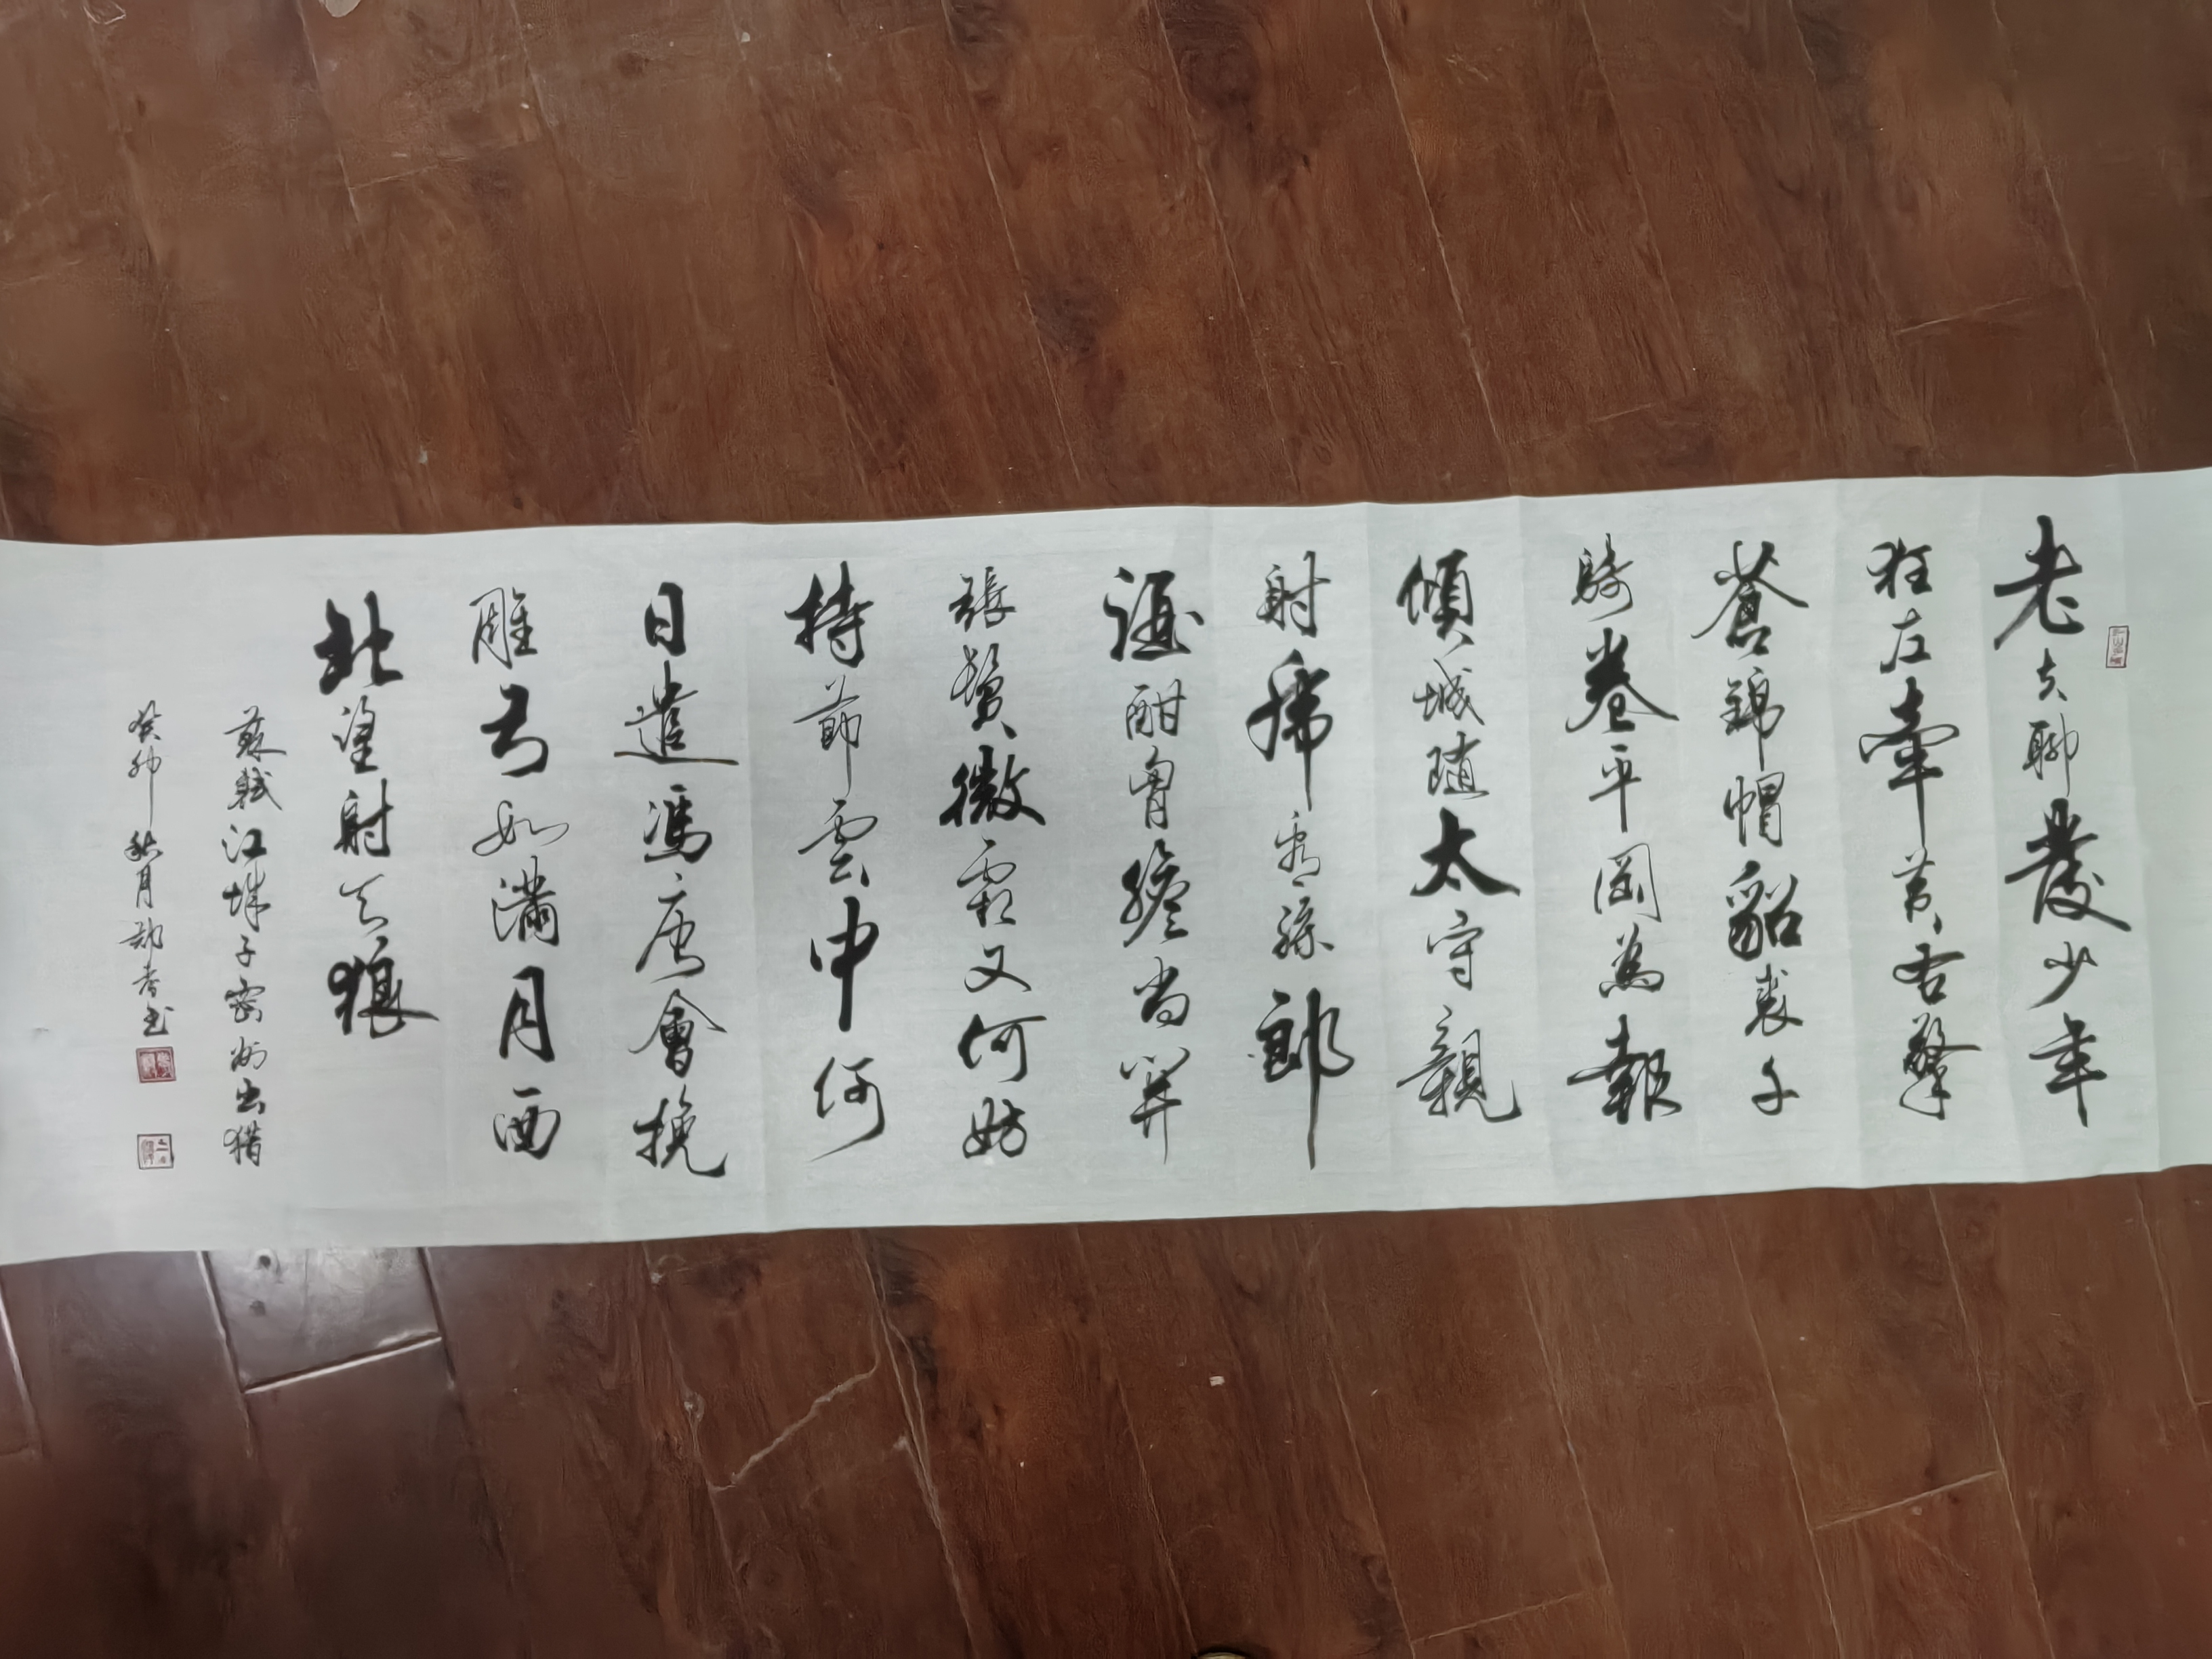 老夫聊發少年
狂左牽黃右擎
蒼錦帽貂裘千
騎卷平岡為報
傾城隨太守親
射虎看孫郎
酒酣胸膽尚開
張鬢微霜又何妨
持節雲中何
日遣馮唐會挽
雕弓如滿月西
北望射天狼
蘇軾江城子密州出猎
癸卯秋月
書